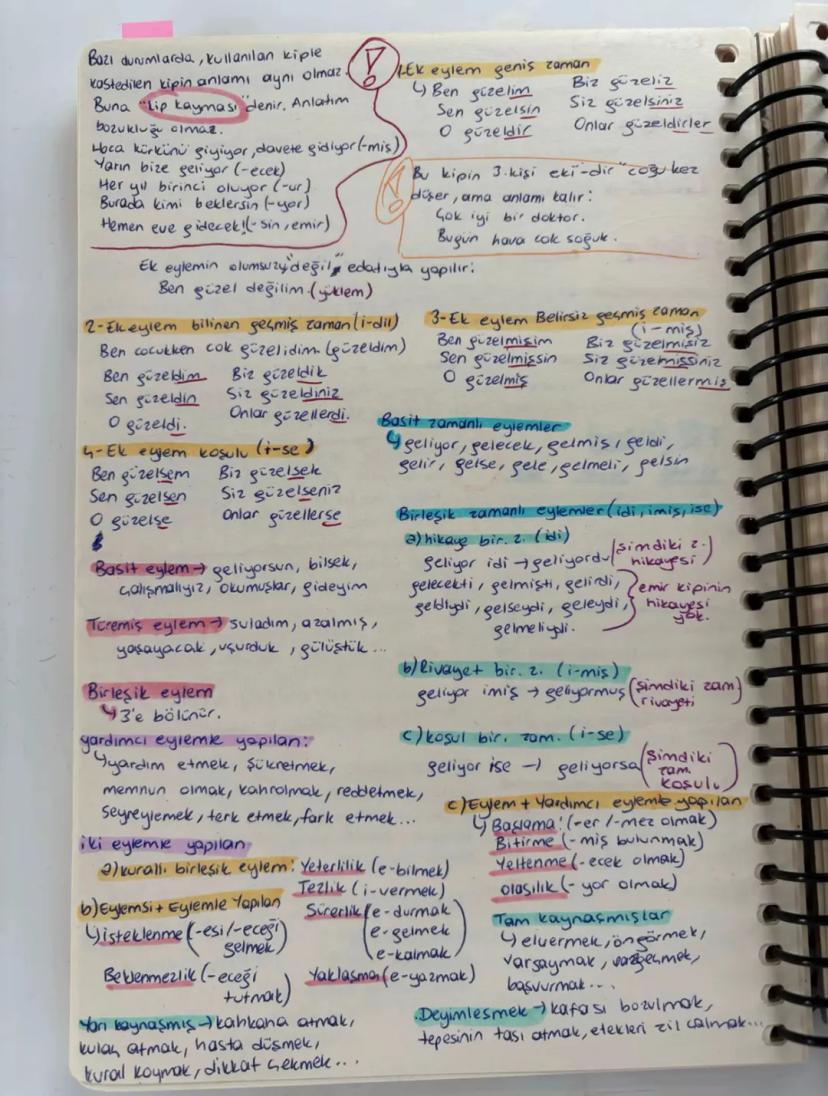 Bazı durumlarda, kullanılan kiple
kastedilen kipin anlamı aynı olmaz.
Buna "kip kayması" denir. Anlatım
bozukluğu olmaz.
Hoca kürkünü giyiyor, davete gidiyor (-miş)
Yarın bize geliyor (-ecek)
Her yıl birinci oluyor (-ur)
Burada kimi beklersin (-yor)
Hemen eve gidecek! (-sin, emir)
1-Ek eylem geniş zaman
Ben güzelim Biz güzeliz
Sen güzelsin Siz güzelsiniz
O güzeldir Onlar güzeldirler
Bu kipin 3. kişi eki "-dir" çoğu kez
düşer, ama anlamı kalır:
Çok iyi bir doktor.
Bugün hava çok soğuk.
Ek eylemin olumsuzu "değil" edatıyla yapılır:
Ben güzel değilim. (yüklem)
2-Ek eylem bilinen geçmiş zaman (i-di)
Ben çocukken çok güzelidim. (güzeldim)
Ben güzeldim Biz güzeldik
Sen güzeldin Siz güzeldiniz
O güzeldi. Onlar güzellerdi.
3-Ek eylem Belirsiz geçmiş zaman
(i-miş)
Ben güzelmişim Biz güzelmişiz
Sen güzelmişsin Siz güzelmişsiniz
O güzelmiş Onlar güzellermiş
4-Ek eylem koşulu (i-se)
Ben güzelsem Biz güzelsek
Sen güzelsen Siz güzelseniz
O güzelse Onlar güzellerse
Basit eylem → geliyorsun, bilsek,
çalışmalıyız, okumuşlar, gideyim
Türemiş eylem → suladım, azalmış,
yaşayacak, uşurduk, gülüştük...
Birleşik eylem
↳ 3'e bölünür.
yardımcı eylemle yapılan:
↳ yardım etmek, şükretmek,
memnun olmak, kahrolmak, reddetmek,
seyreylemek, terk etmek, fark etmek...
iki eylemle yapılan
a) kurallı birleşik eylem: Yeterlilik (e-bilmek)
Tezlik (i-vermek)
Sürerlik (e-durmak
e-gelmek
e-kalmak)
Yaklaşma (e-yazmak)
b) Eylemsi + Eylemle Yapılan
↳ İsteklenme (-esi/-eceği
gelmek)
Beklenmezlik (-eceği
tutmak)
Yarı kaynaşmış → kahkaha atmak,
kulaç atmak, hasta düşmek,
kural koymak, dikkat çekmek...
Basit zamanlı eylemler
↳ geliyor, gelecek, gelmiş, geldi,
gelir, gelse, gele, gelmeli, gelsin
Birleşik zamanlı eylemler (idi, imiş, ise)
a) hikaye bir. z. (idi)
geliyor idi → geliyordu (şimdiki z.
hikayesi)
gelecekti, gelmişti, gelirdi,
geldiydi, gelseydi, geleydi,
gelmeliydi.
emir kipinin
hikayesi
yok.
b) Rivayet bir. z. (i-miş)
geliyor imiş → geliyormuş (şimdiki zam
rivayeti)
c) koşul bir. zam. (i-se)
geliyor ise → geliyorsa (şimdiki
zam.
koşulu)
c) Eylem + Yardımcı eylemle yapılan
↳ Başlama: (-er/-mez olmak)
Bitirme (-miş bulunmak)
Yeltenme (-ecek olmak)
olasılık (-yor olmak)
Tam kaynaşmışlar
↳ elvermek, öngörmek,
varsaymak, vazgeçmek,
başvurmak...
.Deyimleşmek → kafası bozulmak,
tepesinin tası atmak, etekleri zil çalmak...